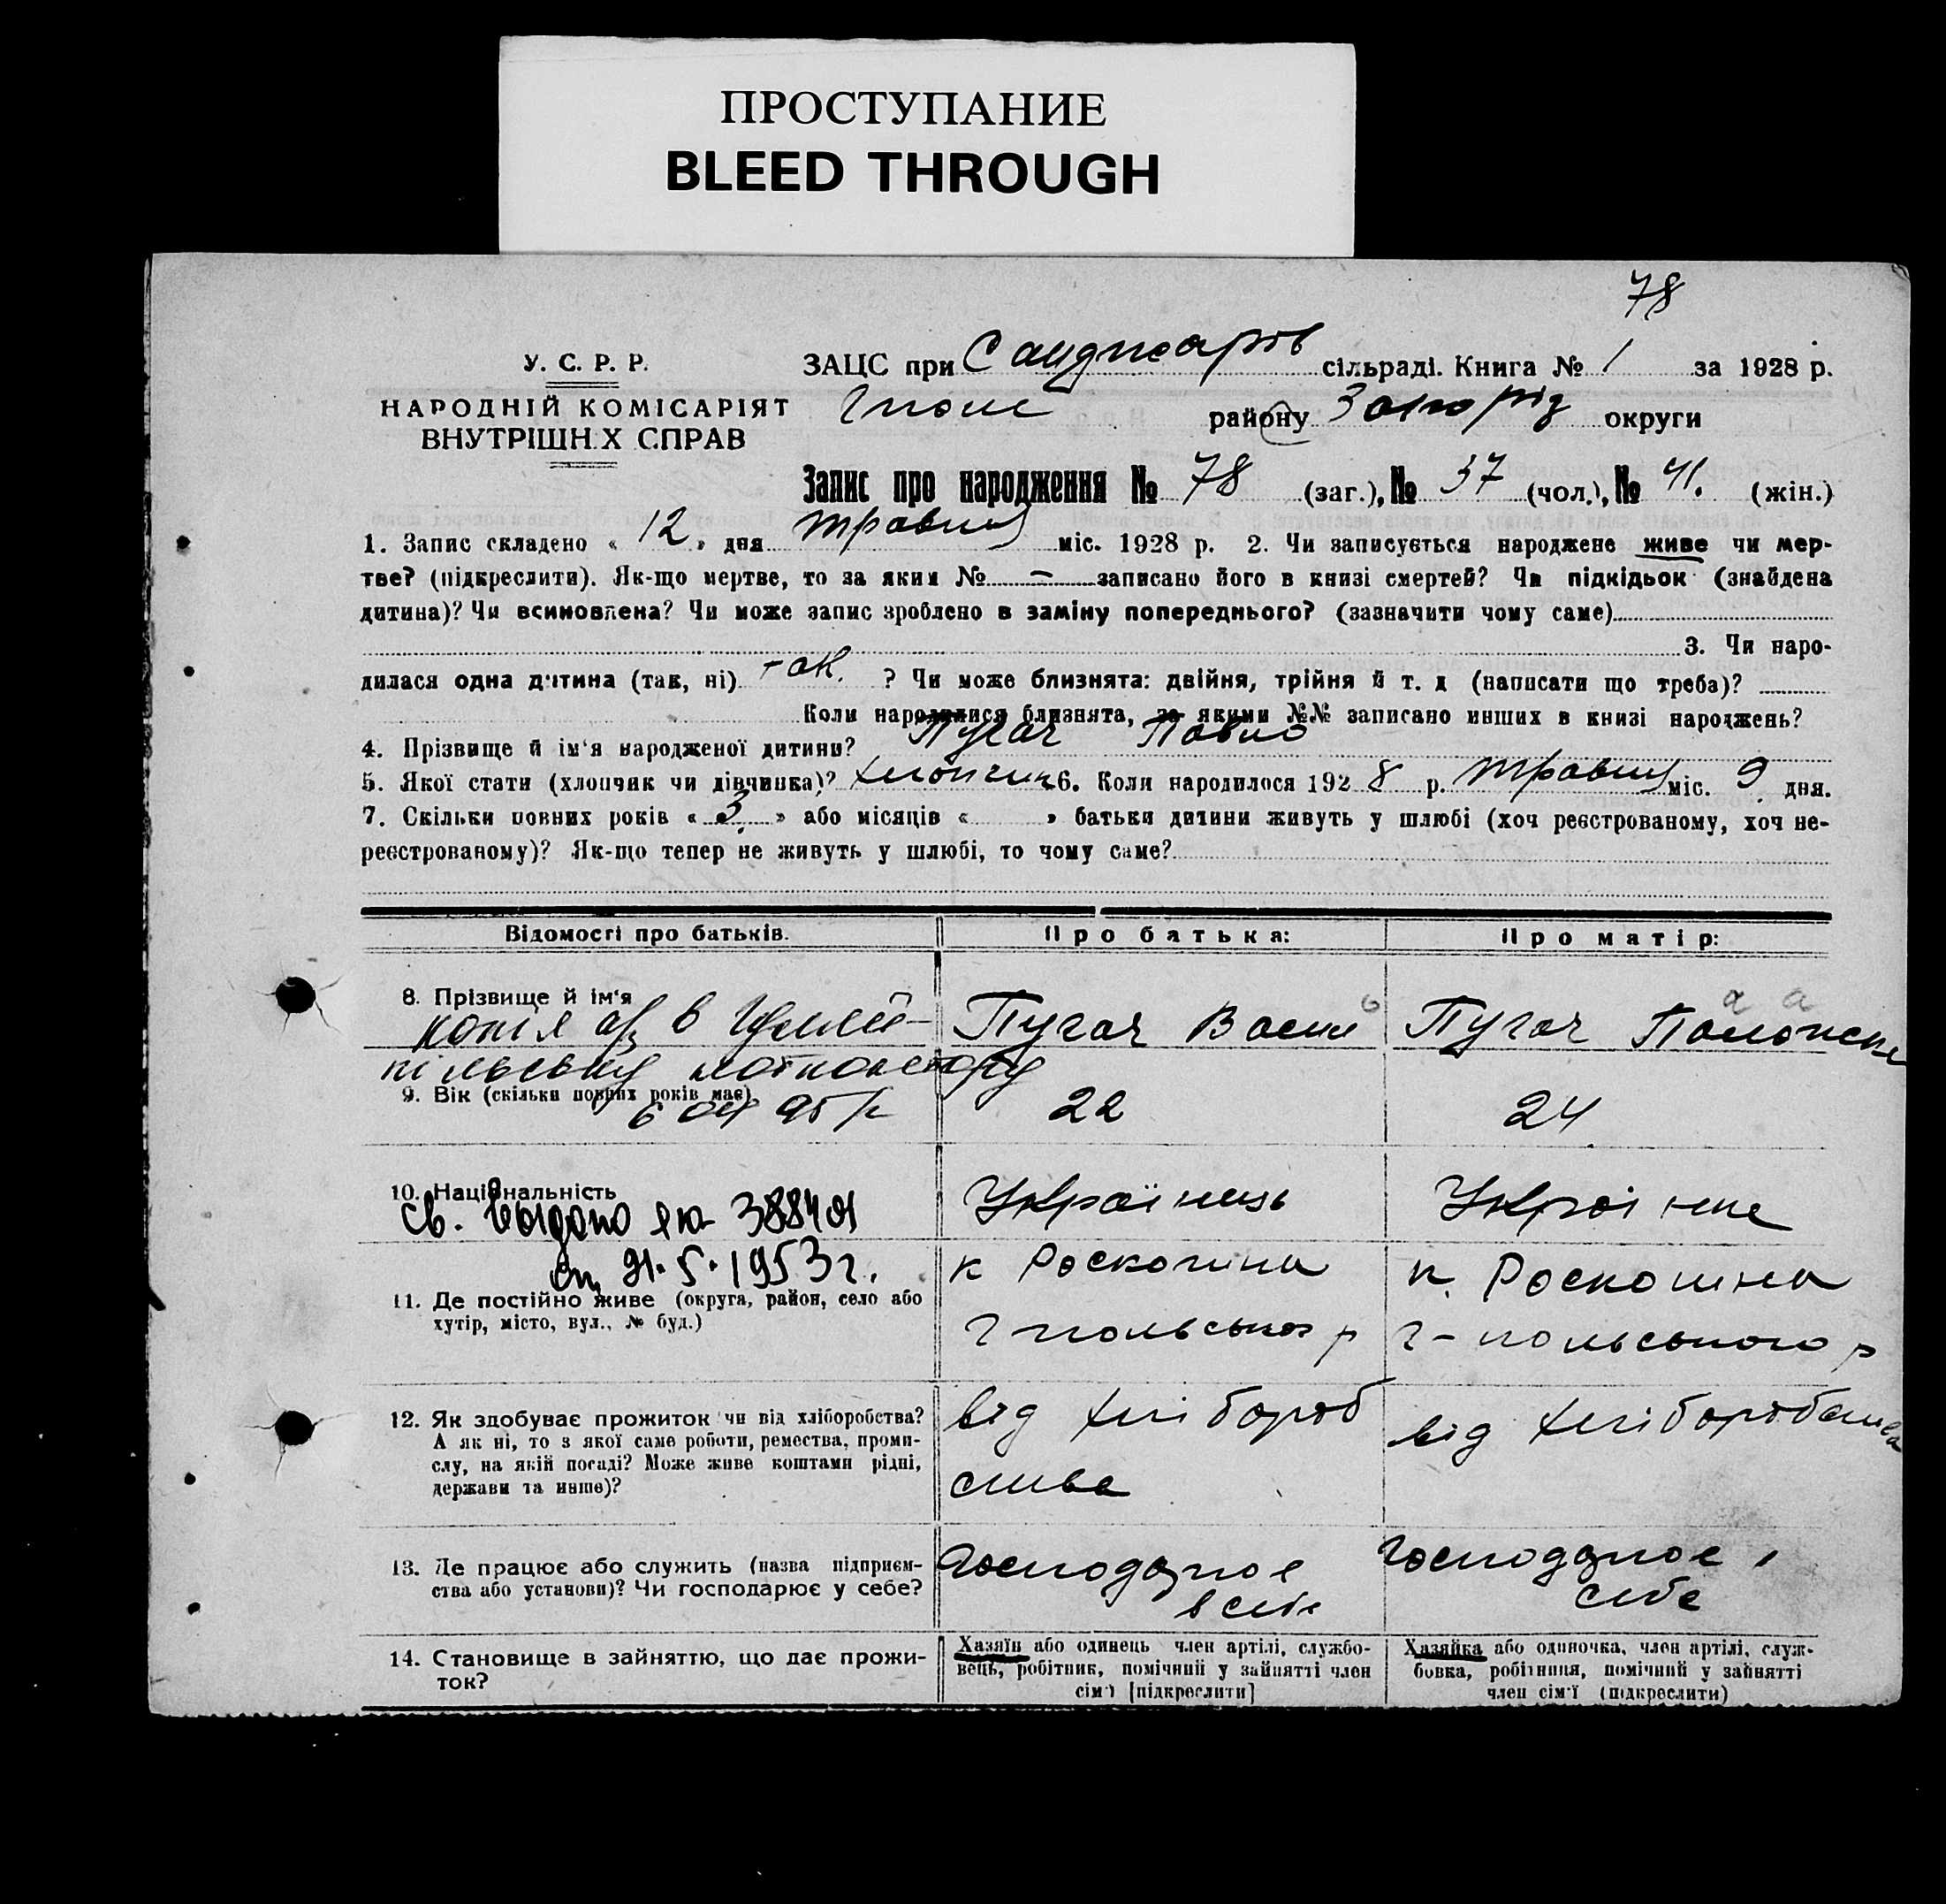 ПРОСТУПАНИЕ
BLEED THROUGH
78
У. С. Р. Р.
НАРОДНІЙ КОМІСАРІЯТ
ВНУТРІШН.Х СПРАВ
ЗАЦС при Санджарів сільраді. Книга № 1 за 1928 р.
Гполе району Запоріз округи
Запис про народження № 78 (заг.), № 37 (чол.), № 41. (жін.)
1. Запис складено « 12 » дня травня міс. 1928 р. 2. Чи записується народжене живе чи мер-
тве? (підкреслити). Як-що мертве, то за яким № — записано його в книзі смертей? Чи підкідьок (знайдена
дитина)? Чи всиновлена? Чи може запис зроблено в заміну попереднього? (зазначити чому саме)
3. Чи наро-
дилася одна дитина (так, ні) так. ? Чи може близнята: двійня, трійня й т. д (написати що треба)?
Коли народилися близнята, за якими №№ записано инших в книзі народжень?
4. Прізвище й ім'я народженої дитини? Пугач Павло
5. Якої стати (хлопчик чи дівчинка)? хлопчик 6. Коли народилося 1928 р. травня міс. 9 дня.
7. Скільки повних років « 3. » або місяців « » батьки дитини живуть у шлюбі (хоч реєстрованому, хоч не-
реєстрованому)? Як-що тепер не живуть у шлюбі, то чому саме?
Відомості про батьків. Про батька: Про матір:
8. Прізвище й ім'я
Пугач Васил Пугач Палажка
копія в Гуляй-
пільську нотконтору
9. Вік (скільки повних років має)
22 24
10. Національність
Українець Українка
Св. выдано 388401
от 21.5.1953г.
11. Де постійно живе (округа, район, село або
хутір, місто, вул., № буд.)
к Роскошна к. Роскошна
Г польськог р Г-польського р
12. Як здобуває прожиток чи від хліборобства?
А як ні, то з якої саме роботи, ремества, проми-
слу, на якій посаді? Може живе коштами рідні,
держави та инше)?
від хлібороб
ства
від хліборобства
13. Де працює або служить (назва підприєм-
ства або установи)? Чи господарює у себе?
Господарює
в себе
Господарює
себе
14. Становище в зайняттю, що дає прожи-
ток?
Хазяїн або одинець член артілі, службо-
вець, робітник, помічний у зайнятті член
сім'ї [підкреслити]
Хазяйка або одиночка, член артілі, служ-
бовка, робітниця, помічний у зайнятті
член сім'ї (підкреслити)